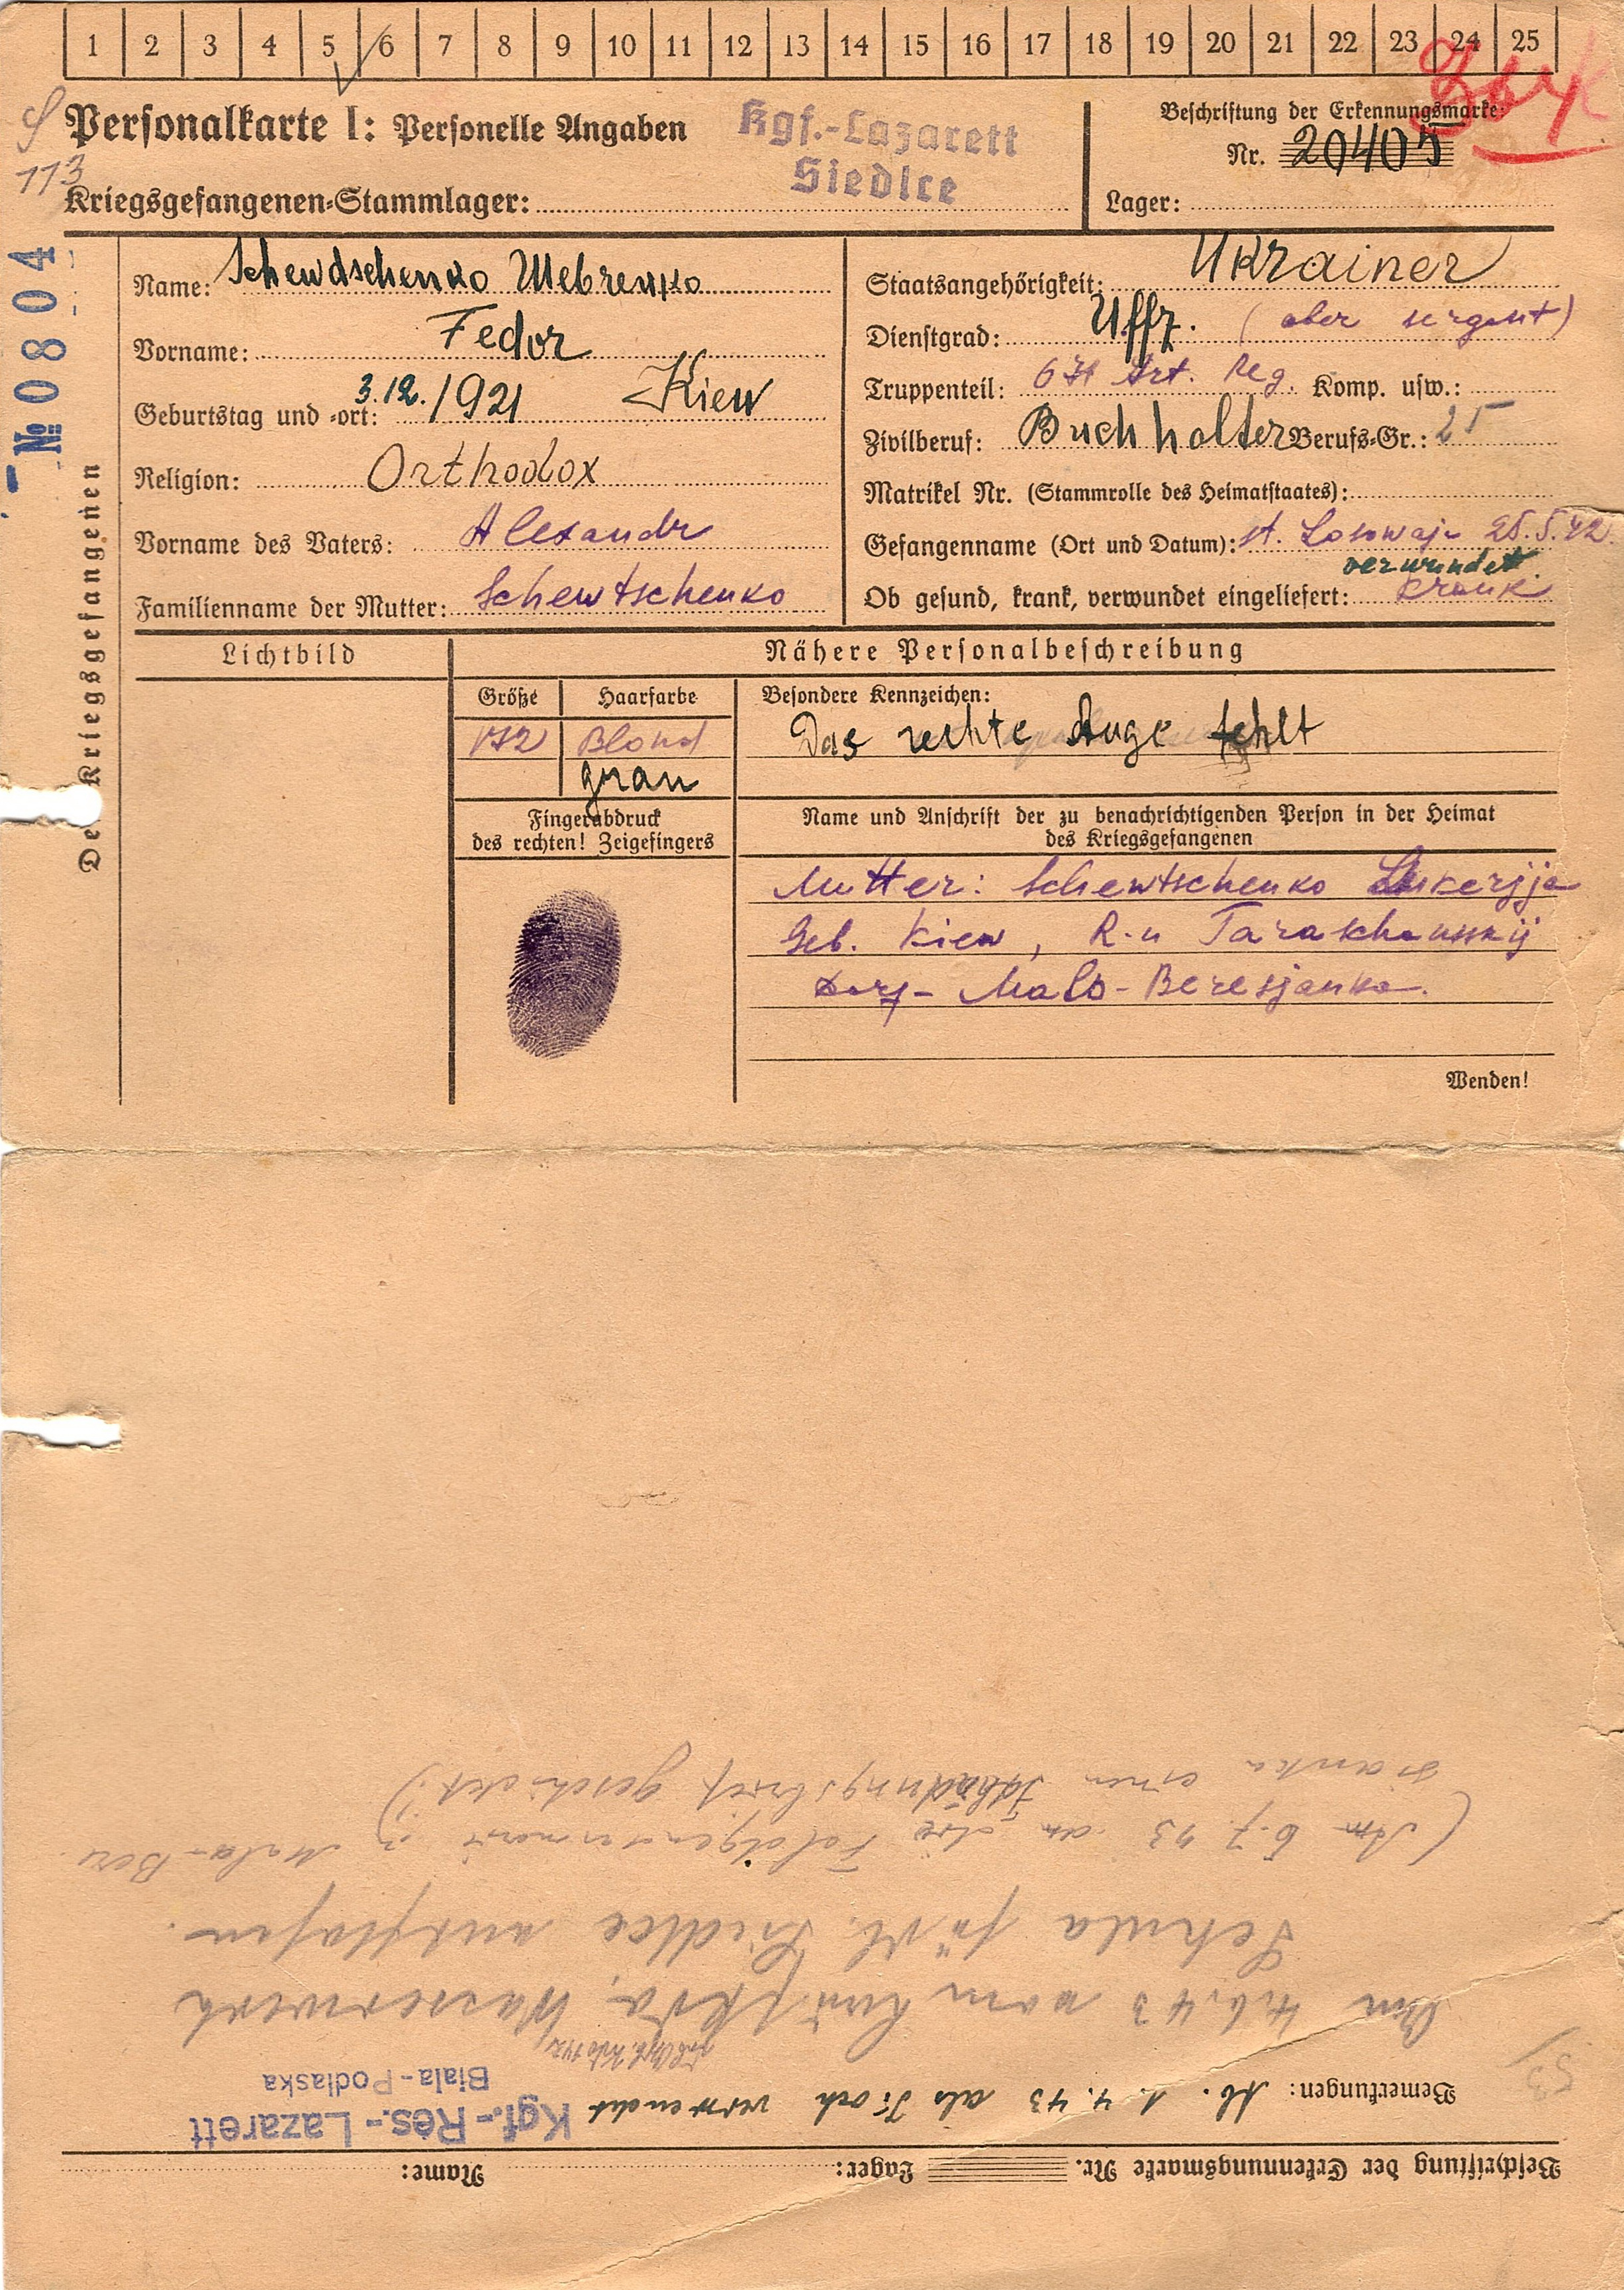 1 2 3 4 5 6 7 8 9 10 11 12 13 14 15 16 17 18 19 20 21 22 23 24 25
Personalkarte I: Personelle Angaben
Kgf.-Lazarett
Siedlce
Beschriftung der Erkennungsmarke:
Nr. 20405
113
Kriegsgefangenen-Stammlager:
Lager:
№ 0804
Des Kriegsgefangenen
Name: Schewdschenko Шевченко
Vorname: Fedor
Geburtstag und -ort: 3.12./1921 Kiew
Religion: Orthodox
Vorname des Vaters: Alexandr
Familienname der Mutter: Schewtschenko
Staatsangehörigkeit: Ukrainer
Dienstgrad: Uffz. (ober sergant)
Truppenteil: 671 Art. Reg. Komp. usw.:
Zivilberuf: Buchholter Berufs-Gr.: 25
Matrikel Nr. (Stammrolle des Heimatstaates):
Gefangenname (Ort und Datum): st. Losowaja 25.5.42.
verwundet
Ob gesund, krank, verwundet eingeliefert: krank
Lichtbild
Nähere Personalbeschreibung
Größe
Haarfarbe
Besondere Kennzeichen:
172
Blond
Das rechte Auge fehlt
grau
Fingerabdruck
des rechten! Zeigefingers
Name und Anschrift der zu benachrichtigenden Person in der Heimat
des Kriegsgefangenen
Mutter: Schewtschenko Lukerjja
Geb. Kiew, R-n Taraschansskij
Dorf- Malo-Beresjanka.
Wenden!
Beschriftung der Erkennungsmarke Nr. Lager: Name:
Bemerkungen: Ab. 1.4.43 als Koch verwendet
Kgf.-Res.-Lazarett
Biala-Podlaska
53
Am 4.6.43 vom Wasserwerk
Siedlce entflohen.
(Am 6.7.43 an die Feldgendarmerie in Mala-Bere
sianka einen Fahndungsbrief geschickt.)